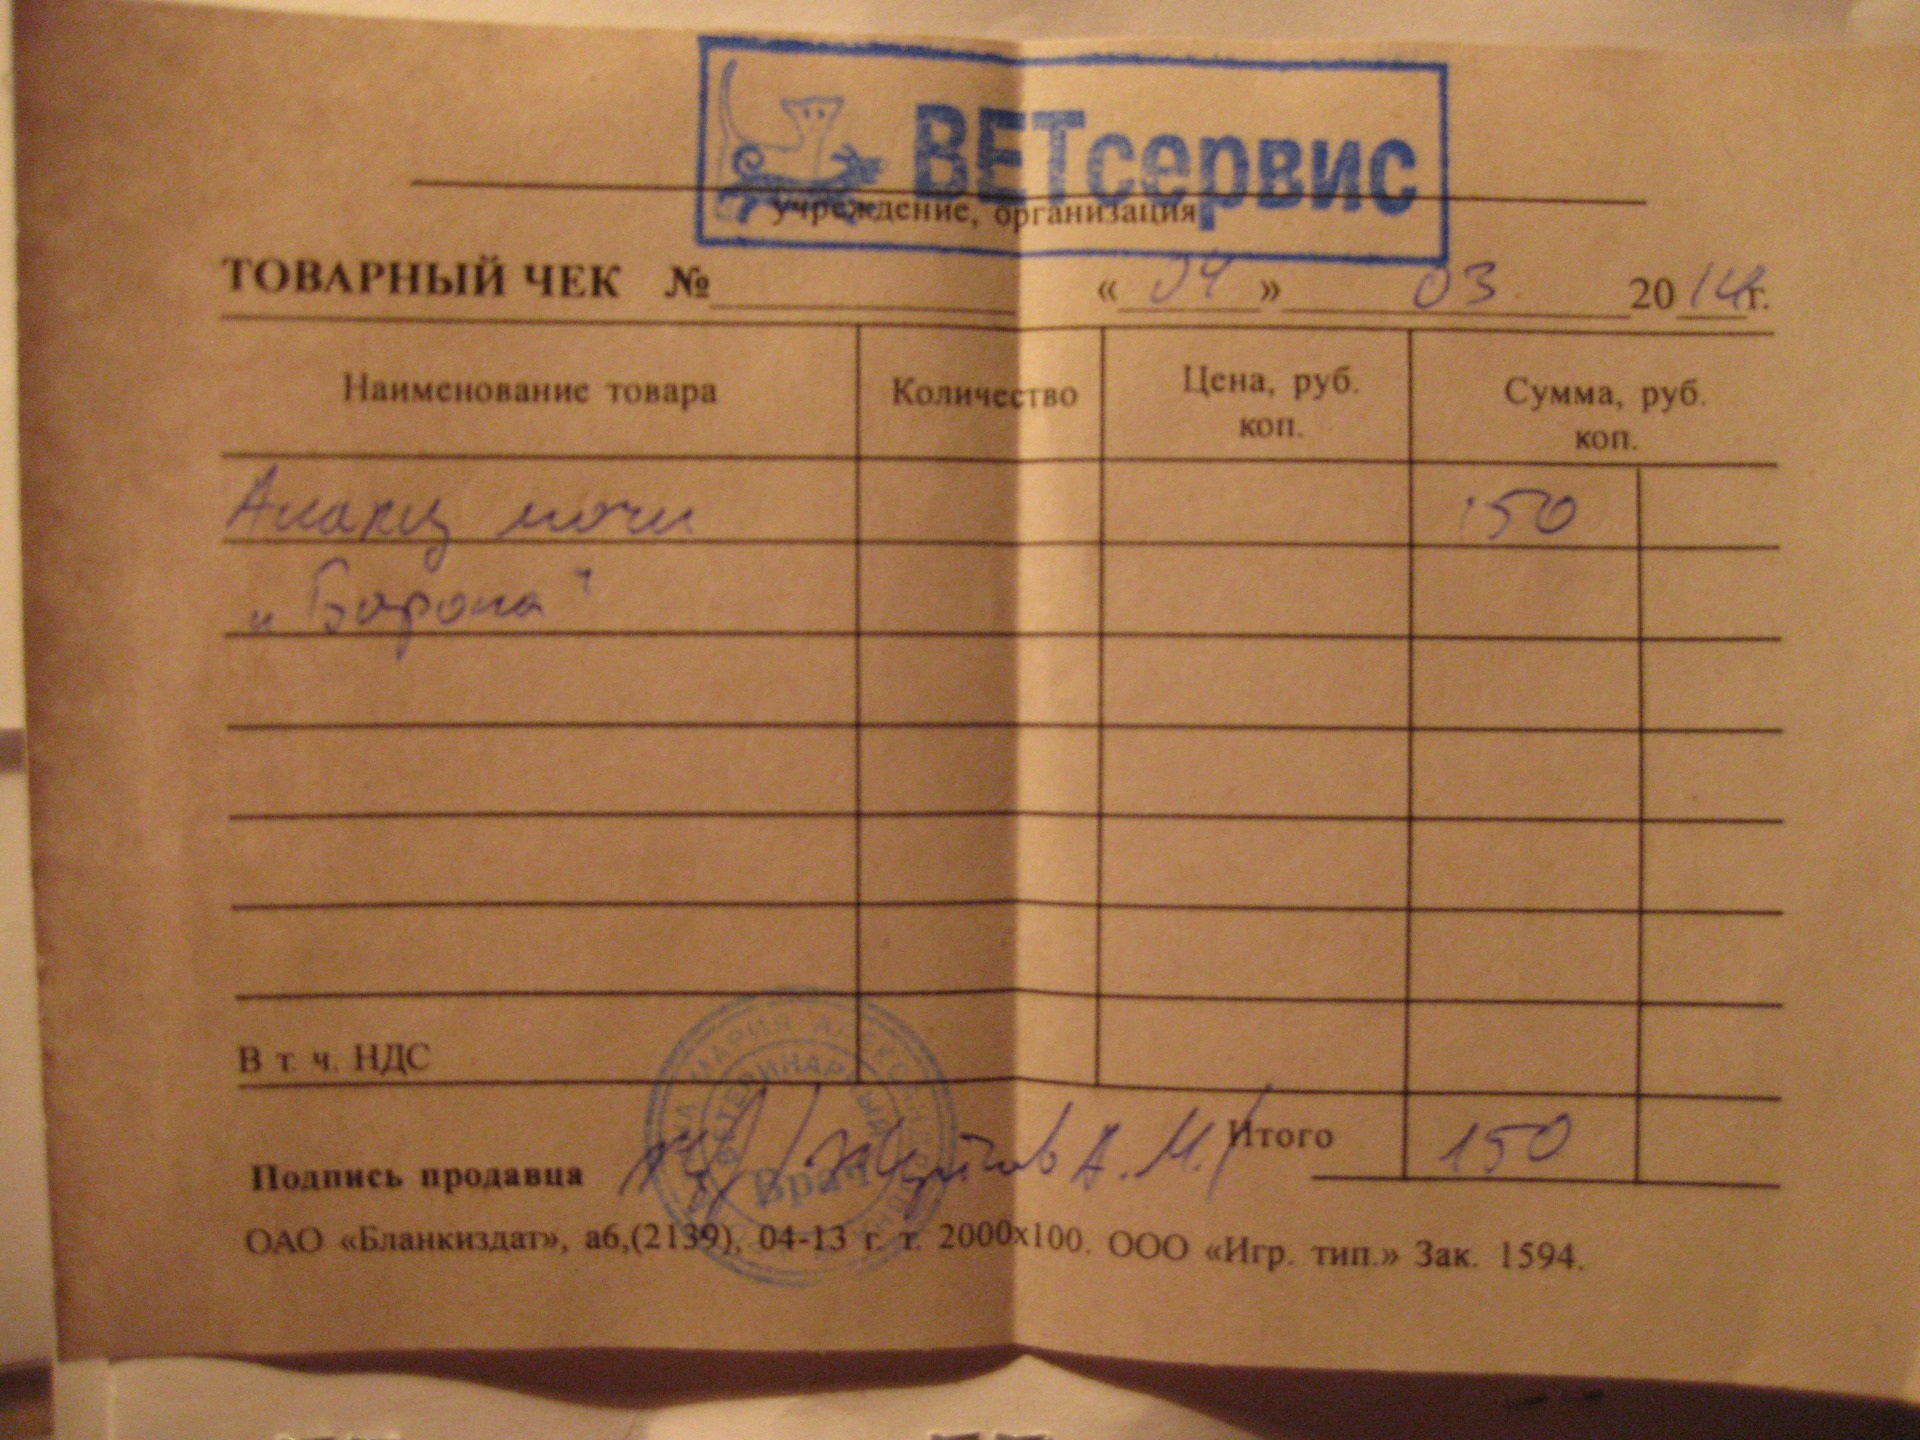 ВЕТсервис
учреждение, организация
ТОВАРНЫЙ ЧЕК № « 04 » 03 2014г.
Наименование товара Количество Цена, руб. коп. Сумма, руб. коп.
Анализ мочи 150
"Барона"
В т. ч. НДС
МАРИЯ
ВЕТЕРИНАРНЫЙ
Врач
Подпись продавца А. М. Итого 150
ОАО «Бланкиздат», а6,(2139), 04-13 г. т. 2000х100. ООО «Игр. тип.» Зак. 1594.